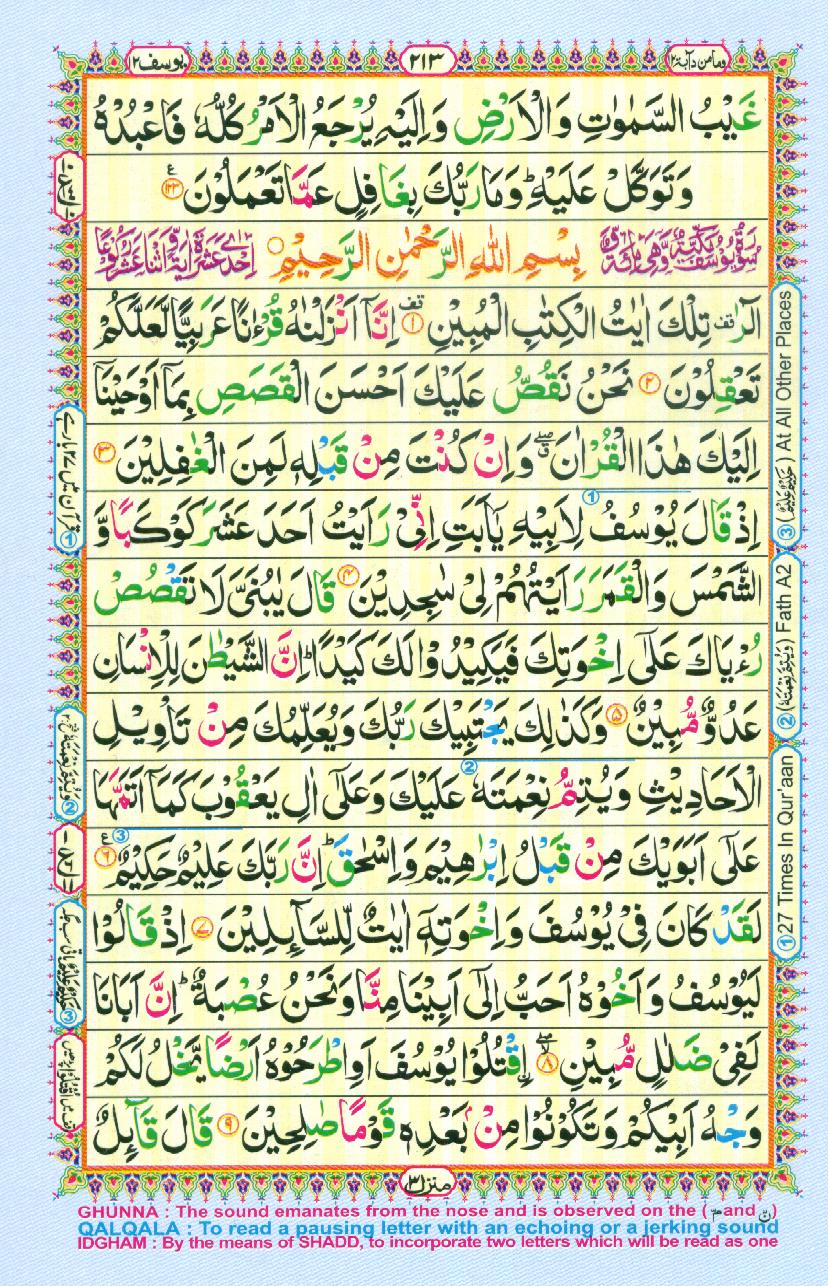 وما من دآبة ۱۲
۲۱۳
يوسف ۱۲
غَيْبُ السَّمٰوٰتِ وَالْاَرْضِ وَاِلَيْهِ يُرْجَعُ الْاَمْرُ كُلُّهٗ فَاعْبُدْهُ
وَتَوَكَّلْ عَلَيْهِ ؕ وَمَا رَبُّكَ بِغَافِلٍ عَمَّا تَعْمَلُوْنَ ۱۲۳
بِسْمِ اللهِ الرَّحْمٰنِ الرَّحِيْمِ
الٓرٰ ۫ تِلْكَ اٰيٰتُ الْكِتٰبِ الْمُبِيْنِ ۱ اِنَّاۤ اَنْزَلْنٰهُ قُرْءٰنًا عَرَبِيًّا لَّعَلَّكُمْ
تَعْقِلُوْنَ ۲ نَحْنُ نَقُصُّ عَلَيْكَ اَحْسَنَ الْقَصَصِ بِمَاۤ اَوْحَيْنَاۤ
اِلَيْكَ هٰذَا الْقُرْاٰنَ ۖ وَاِنْ كُنْتَ مِنْ قَبْلِهٖ لَمِنَ الْغٰفِلِيْنَ ۳
اِذْ قَالَ يُوْسُفُ لِاَبِيْهِ يٰۤاَبَتِ اِنِّيْ رَاَيْتُ اَحَدَ عَشَرَ كَوْكَبًا وَّ
الشَّمْسَ وَالْقَمَرَ رَاَيْتُهُمْ لِيْ سٰجِدِيْنَ ۴ قَالَ يٰبُنَيَّ لَا تَقْصُصْ
رُءْيَاكَ عَلٰۤى اِخْوَتِكَ فَيَكِيْدُوْا لَكَ كَيْدًا ؕ اِنَّ الشَّيْطٰنَ لِلْاِنْسَانِ
عَدُوٌّ مُّبِيْنٌ ۵ وَكَذٰلِكَ يَجْتَبِيْكَ رَبُّكَ وَيُعَلِّمُكَ مِنْ تَاْوِيْلِ
الْاَحَادِيْثِ وَيُتِمُّ نِعْمَتَهٗ عَلَيْكَ وَعَلٰۤى اٰلِ يَعْقُوْبَ كَمَاۤ اَتَمَّهَا
عَلٰۤى اَبَوَيْكَ مِنْ قَبْلُ اِبْرٰهِيْمَ وَاِسْحٰقَ ؕ اِنَّ رَبَّكَ عَلِيْمٌ حَكِيْمٌ ۶
لَقَدْ كَانَ فِيْ يُوْسُفَ وَاِخْوَتِهٖۤ اٰيٰتٌ لِّلسَّآئِلِيْنَ ۷ اِذْ قَالُوْا
لَيُوْسُفُ وَاَخُوْهُ اَحَبُّ اِلٰۤى اَبِيْنَا مِنَّا وَنَحْنُ عُصْبَةٌ ؕ اِنَّ اَبَانَا
لَفِيْ ضَلٰلٍ مُّبِيْنٍ ۸ اۨقْتُلُوْا يُوْسُفَ اَوِ اطْرَحُوْهُ اَرْضًا يَّخْلُ لَكُمْ
وَجْهُ اَبِيْكُمْ وَتَكُوْنُوْا مِنْۢ بَعْدِهٖ قَوْمًا صٰلِحِيْنَ ۹ قَالَ قَآئِلٌ
منزل ۳
③ At All Other Places
② Fath A2
① 27 Times In Qur'aan
GHUNNA : The sound emanates from the nose and is observed on the ( مّ and نّ )
QALQALA : To read a pausing letter with an echoing or a jerking sound
IDGHAM : By the means of SHADD, to incorporate two letters which will be read as one